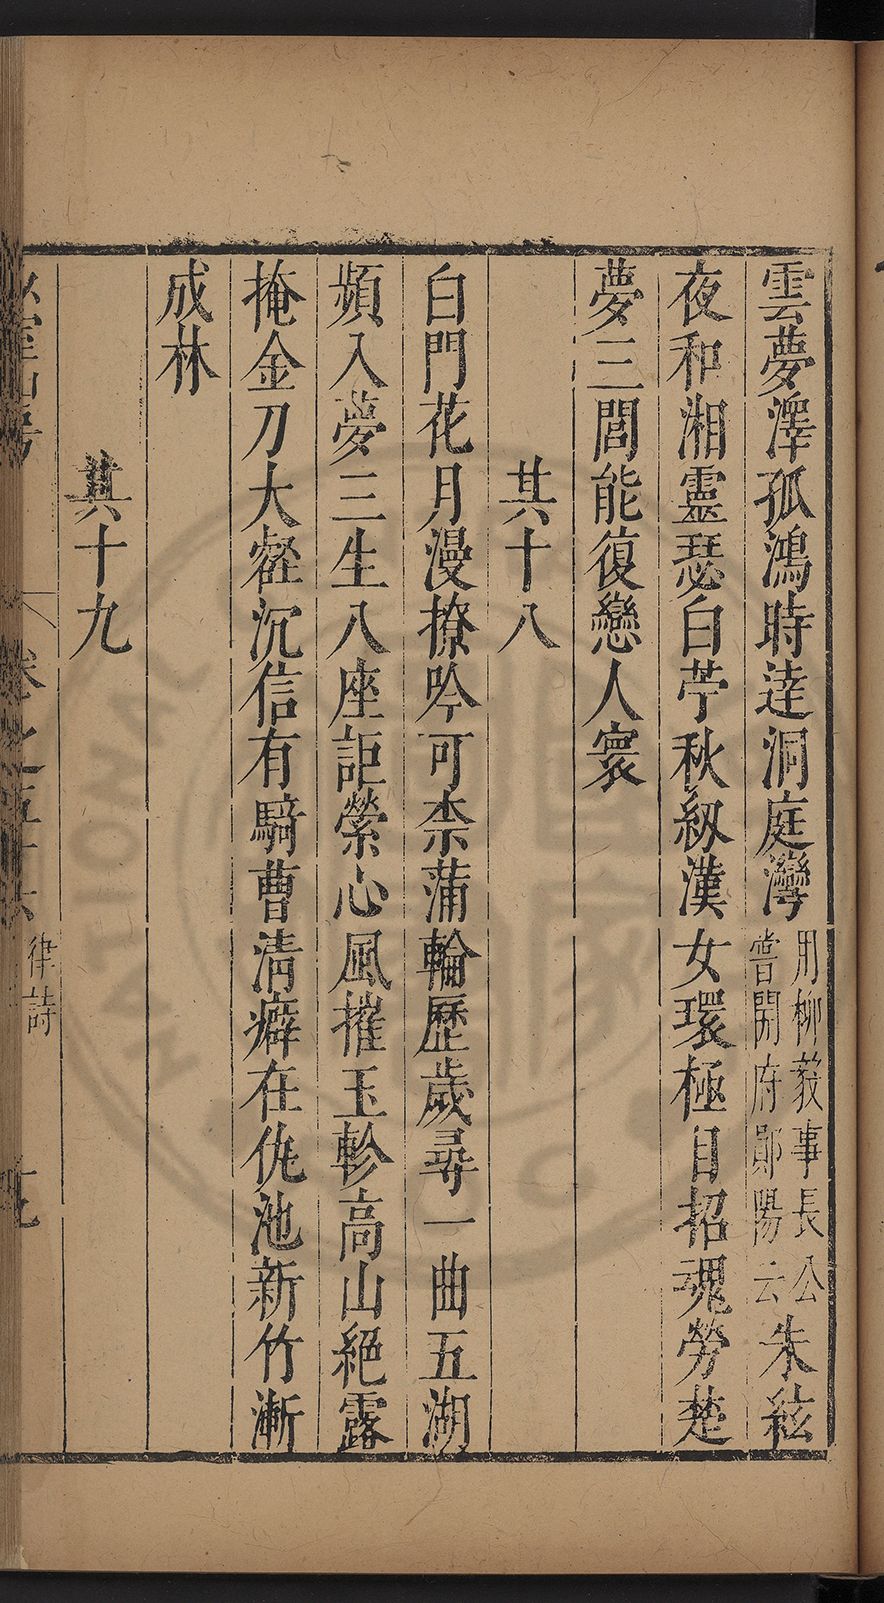 雲夢澤孤鴻時達洞庭灣用柳毅事長公嘗開府鄖陽云朱絃
夜和湘靈瑟白苧秋紉漢女環極目招魂勞楚
夢三閭能復戀人寰
其十八
白門花月漫撩吟可柰蒲輪歷歲尋一曲五湖
頻入夢三生八座詎縈心風摧玉軫高山絕露
掩金刀大壑沉信有騎曹清癖在仇池新竹漸
成林
其十九
卷之五十六 律詩